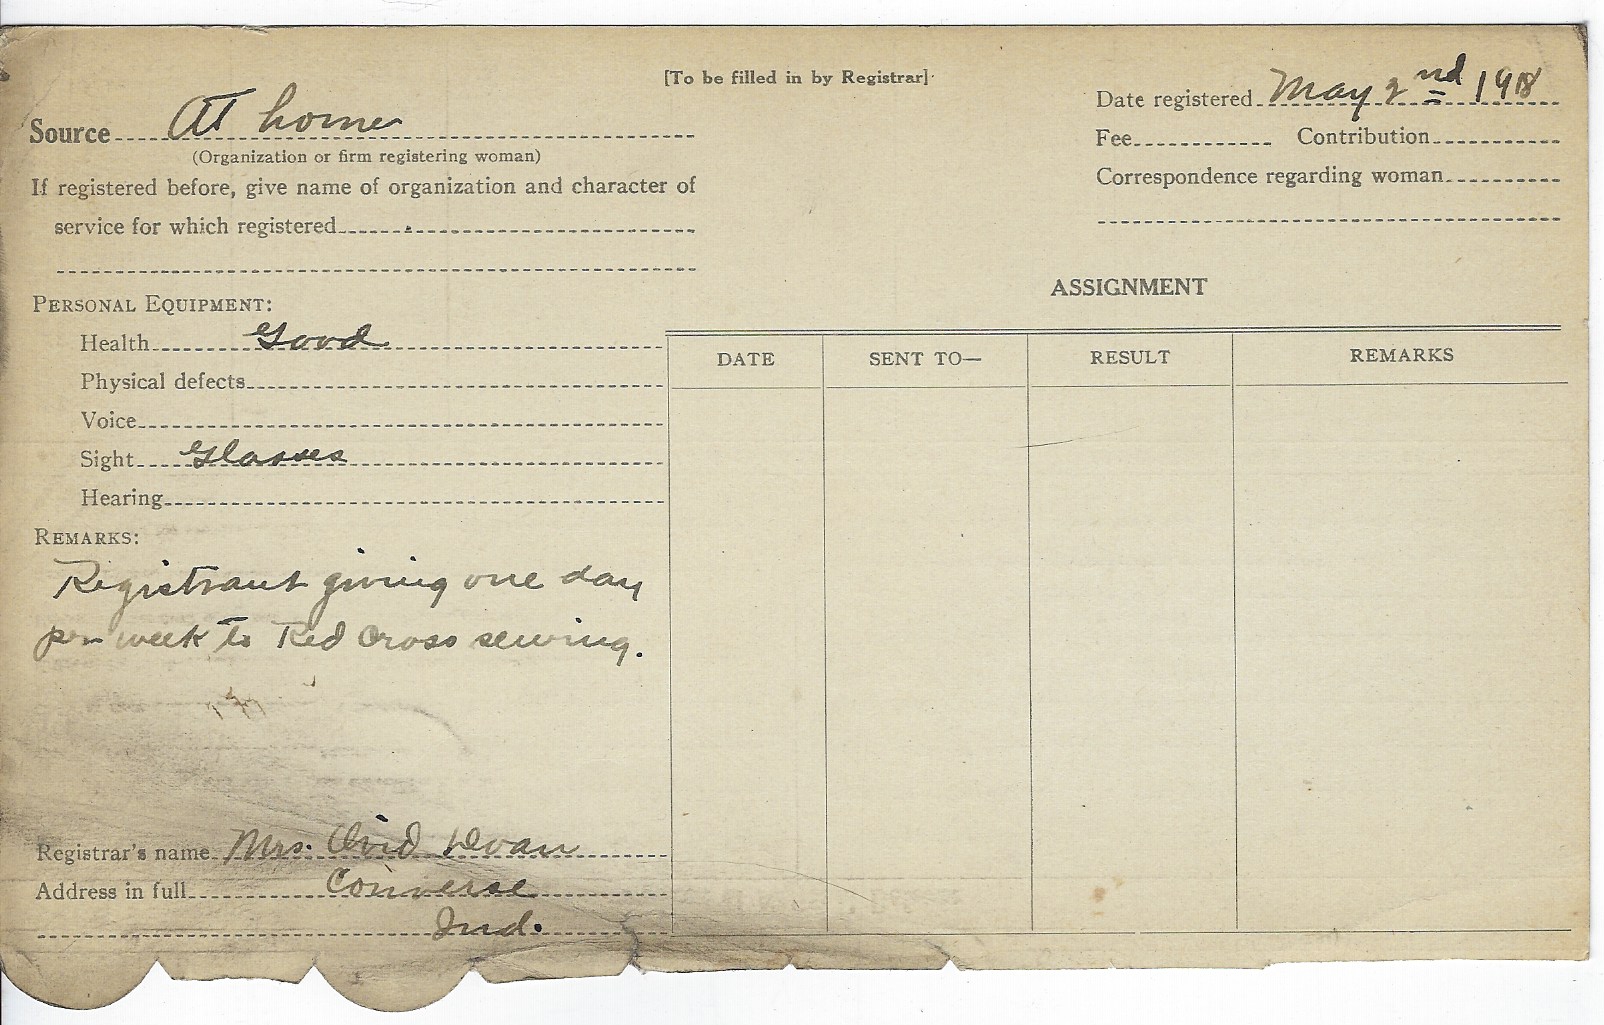 [To be filled in by Registrar]
Source At home
(Organization or firm registering woman)
If registered before, give name of organization and character of
service for which registered
Date registered May 2nd 1918
Fee Contribution
Correspondence regarding woman
PERSONAL EQUIPMENT:
Health Good
Physical defects
Voice
Sight Glasses
Hearing
REMARKS:
Registrant giving one day
per week to Red Cross sewing.
Registrar's name Mrs. Ovid Doan
Address in full Converse
Ind.
ASSIGNMENT
DATE SENT TO— RESULT REMARKS